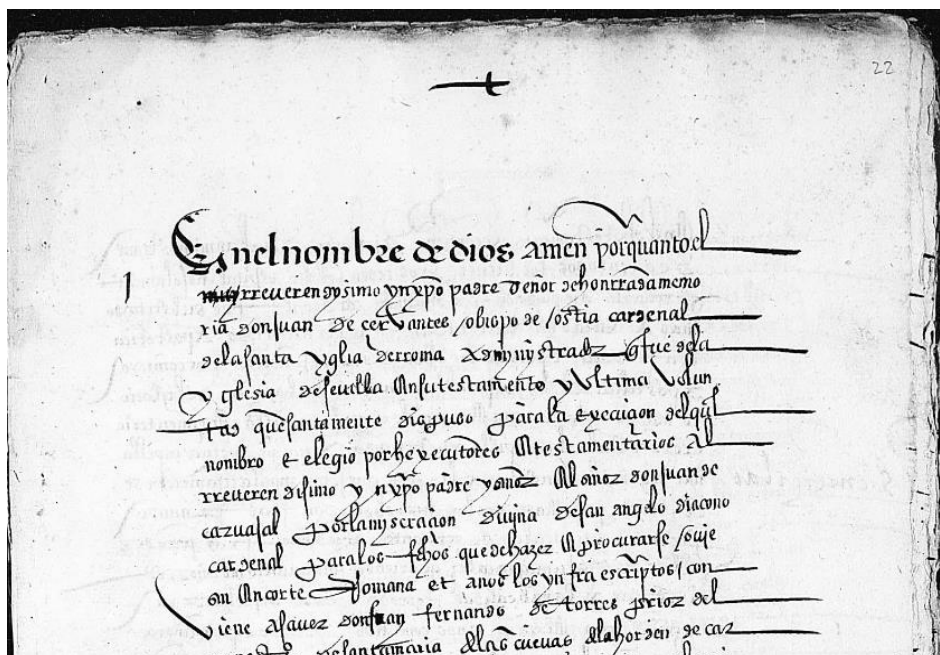 22
En el nombre de dios amen por quanto el
muy rreuerendysimo yn xpo padre señor de honrrada memo
ria don juan de ceruantes obispo de ostia cardenal
de la santa yglia de rroma admynystrador q fue de la
yglesia de seuilla en su testamento y vltima volun
tad que santamente dispuso para la execucion del qual
nombro et elegio por hexecutores testamentarios al
rreuerendisimo yn xpo padre y señor el señor don juan de
caruajal por la myseracion diuyna de san angelo diacono
cardenal para los fechos que de hazer procurar se ouie
en corte rromana et a nos los ynfra escriptos con
viene a sauer don fernando de torres prior del
santa maria de las cueuas de la horden de car